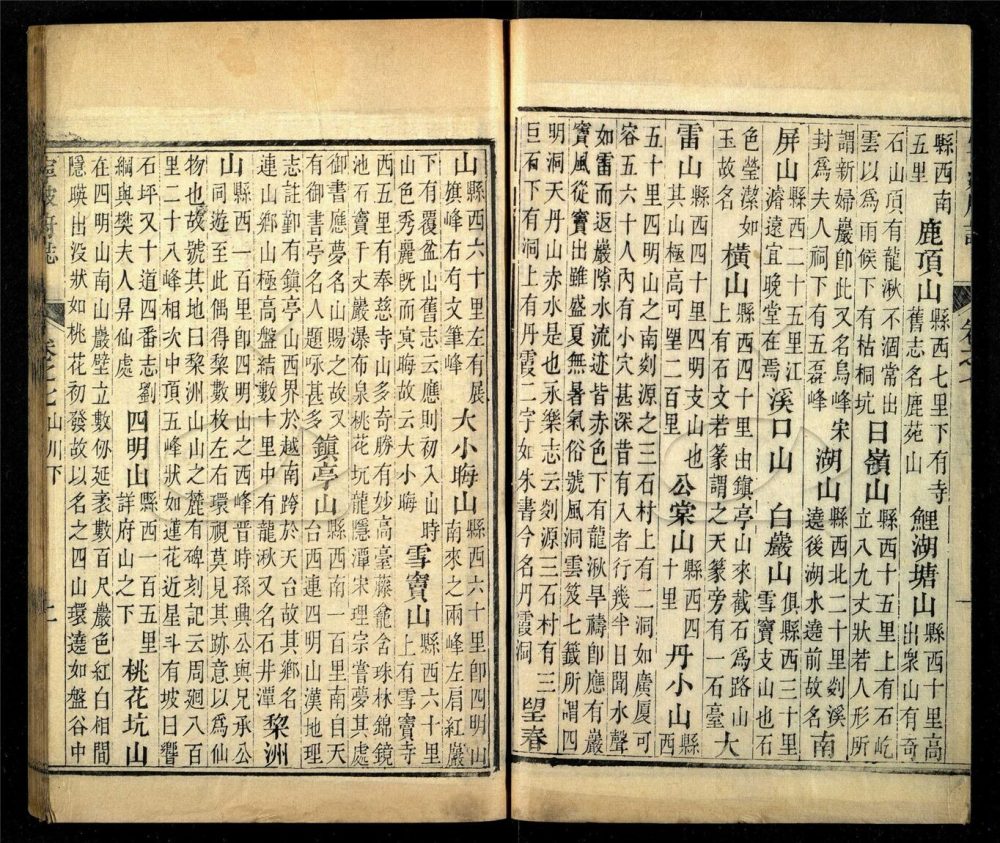 縣西南五里 鹿頂山 縣西七里下有寺舊志名鹿苑山 鯉湖塘山 縣西十里高出衆山有奇
石山頂有龍湫不涸常出雲以爲雨候下有枯桐坑 日嶺山 縣西十五里上有石屹立八九丈狀若人形所
謂新婦巖卽此又名烏峰宋封爲夫人祠下有五磊峰 湖山 縣西北二十里剡溪遶後湖水遶前故名 南
屏山 縣西二十五里江濬遠宜晚堂在焉 溪口山 白巖山 俱縣西三十里雪竇支山也石
色瑩潔如玉故名 橫山 縣西四十里由鎮亭山來截石爲路山上有石文若篆謂之天篆旁有一石臺 大
雷山 縣西四十里四明支山也其山極高可望二百里 公棠山 縣西四十里 丹小山 縣西
五十里四明山之南剡源之三石村上有二洞如廣厦可容五六十人內有小穴甚深昔有入者行幾半日聞水聲
如雷而返巖隙水流迹皆赤色下有龍湫旱禱卽應有巖竇風從竇出雖盛夏無暑氣俗號風洞雲笈七籤所謂四
明洞天丹山赤水是也永樂志云剡源三石村有三巨石下有洞上有丹霞二字如朱書今名丹霞洞 望春
山 縣西六十里左有展旗峰右有文筆峰 大小晦山 縣西六十里卽四明山南來之兩峰左肩紅巖
下有覆盆山舊志云應則初入山時山色秀麗旣而冥晦故云大小晦 雪竇山 縣西六十里上有雪竇寺
西五里有奉慈寺山多奇勝有妙高臺藤龕舍珠林錦鏡池石竇千丈巖瀑布泉桃花坑龍隱潭宋理宗嘗夢其處
御書應夢名山賜之故又有御書亭名人題咏甚多 鎮亭山 縣西南一百里南自天台西連四明山漢地理
志註鄞有鎮亭山西界於越南跨於天台故其鄉名連山鄉山極高盤結數十里中有龍湫又名石井潭 棃洲
山 縣西一百里卽四明山之西峰晋時孫興公與兄承公同遊至此偶得棃數枚左右環視莫見其跡意以爲仙
物也故號其地曰棃洲山山之麓有碑刻記云周廻八百里二十八峰相次中頂五峰狀如蓮花近星斗有坡曰響
石坪又十道四番志劉綱與樊夫人昇仙處 四明山 縣西一百五里詳府山之下 桃花坑山
在四明山南山巖壁立數仞延袤數百尺巖色紅白相間隱暎出没狀如桃花初發故以名之四山環遶如盤谷中
寧波府志 卷之七 山川下